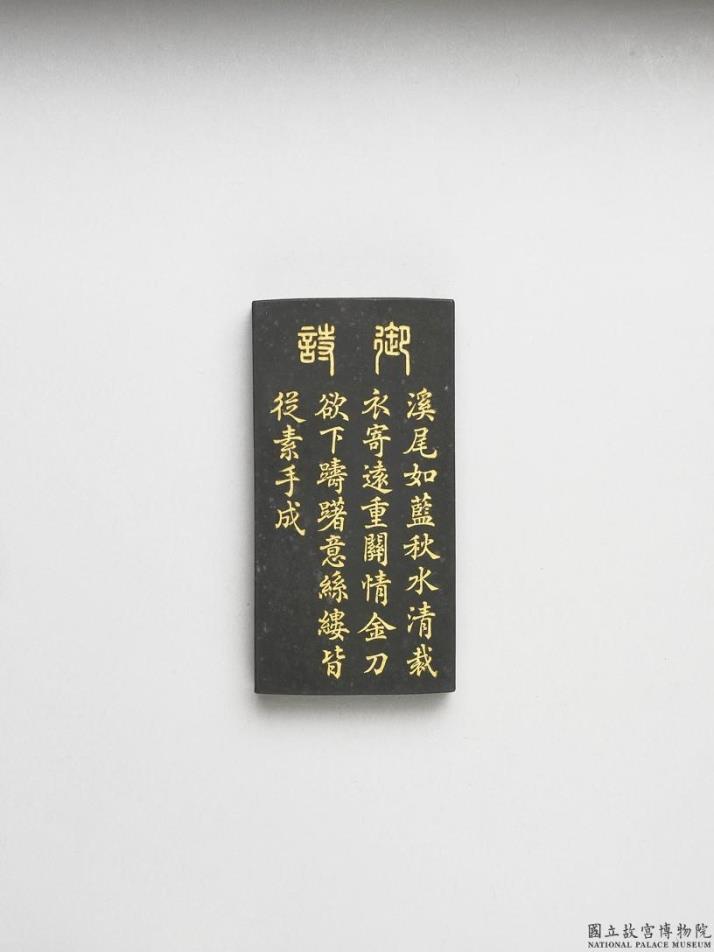 御詩
溪尾如藍秋水清裁
衣寄遠重關情金刀
欲下躊躇意絲縷皆
從素手成
國立故宮博物院
NATIONAL PALACE MUSEUM